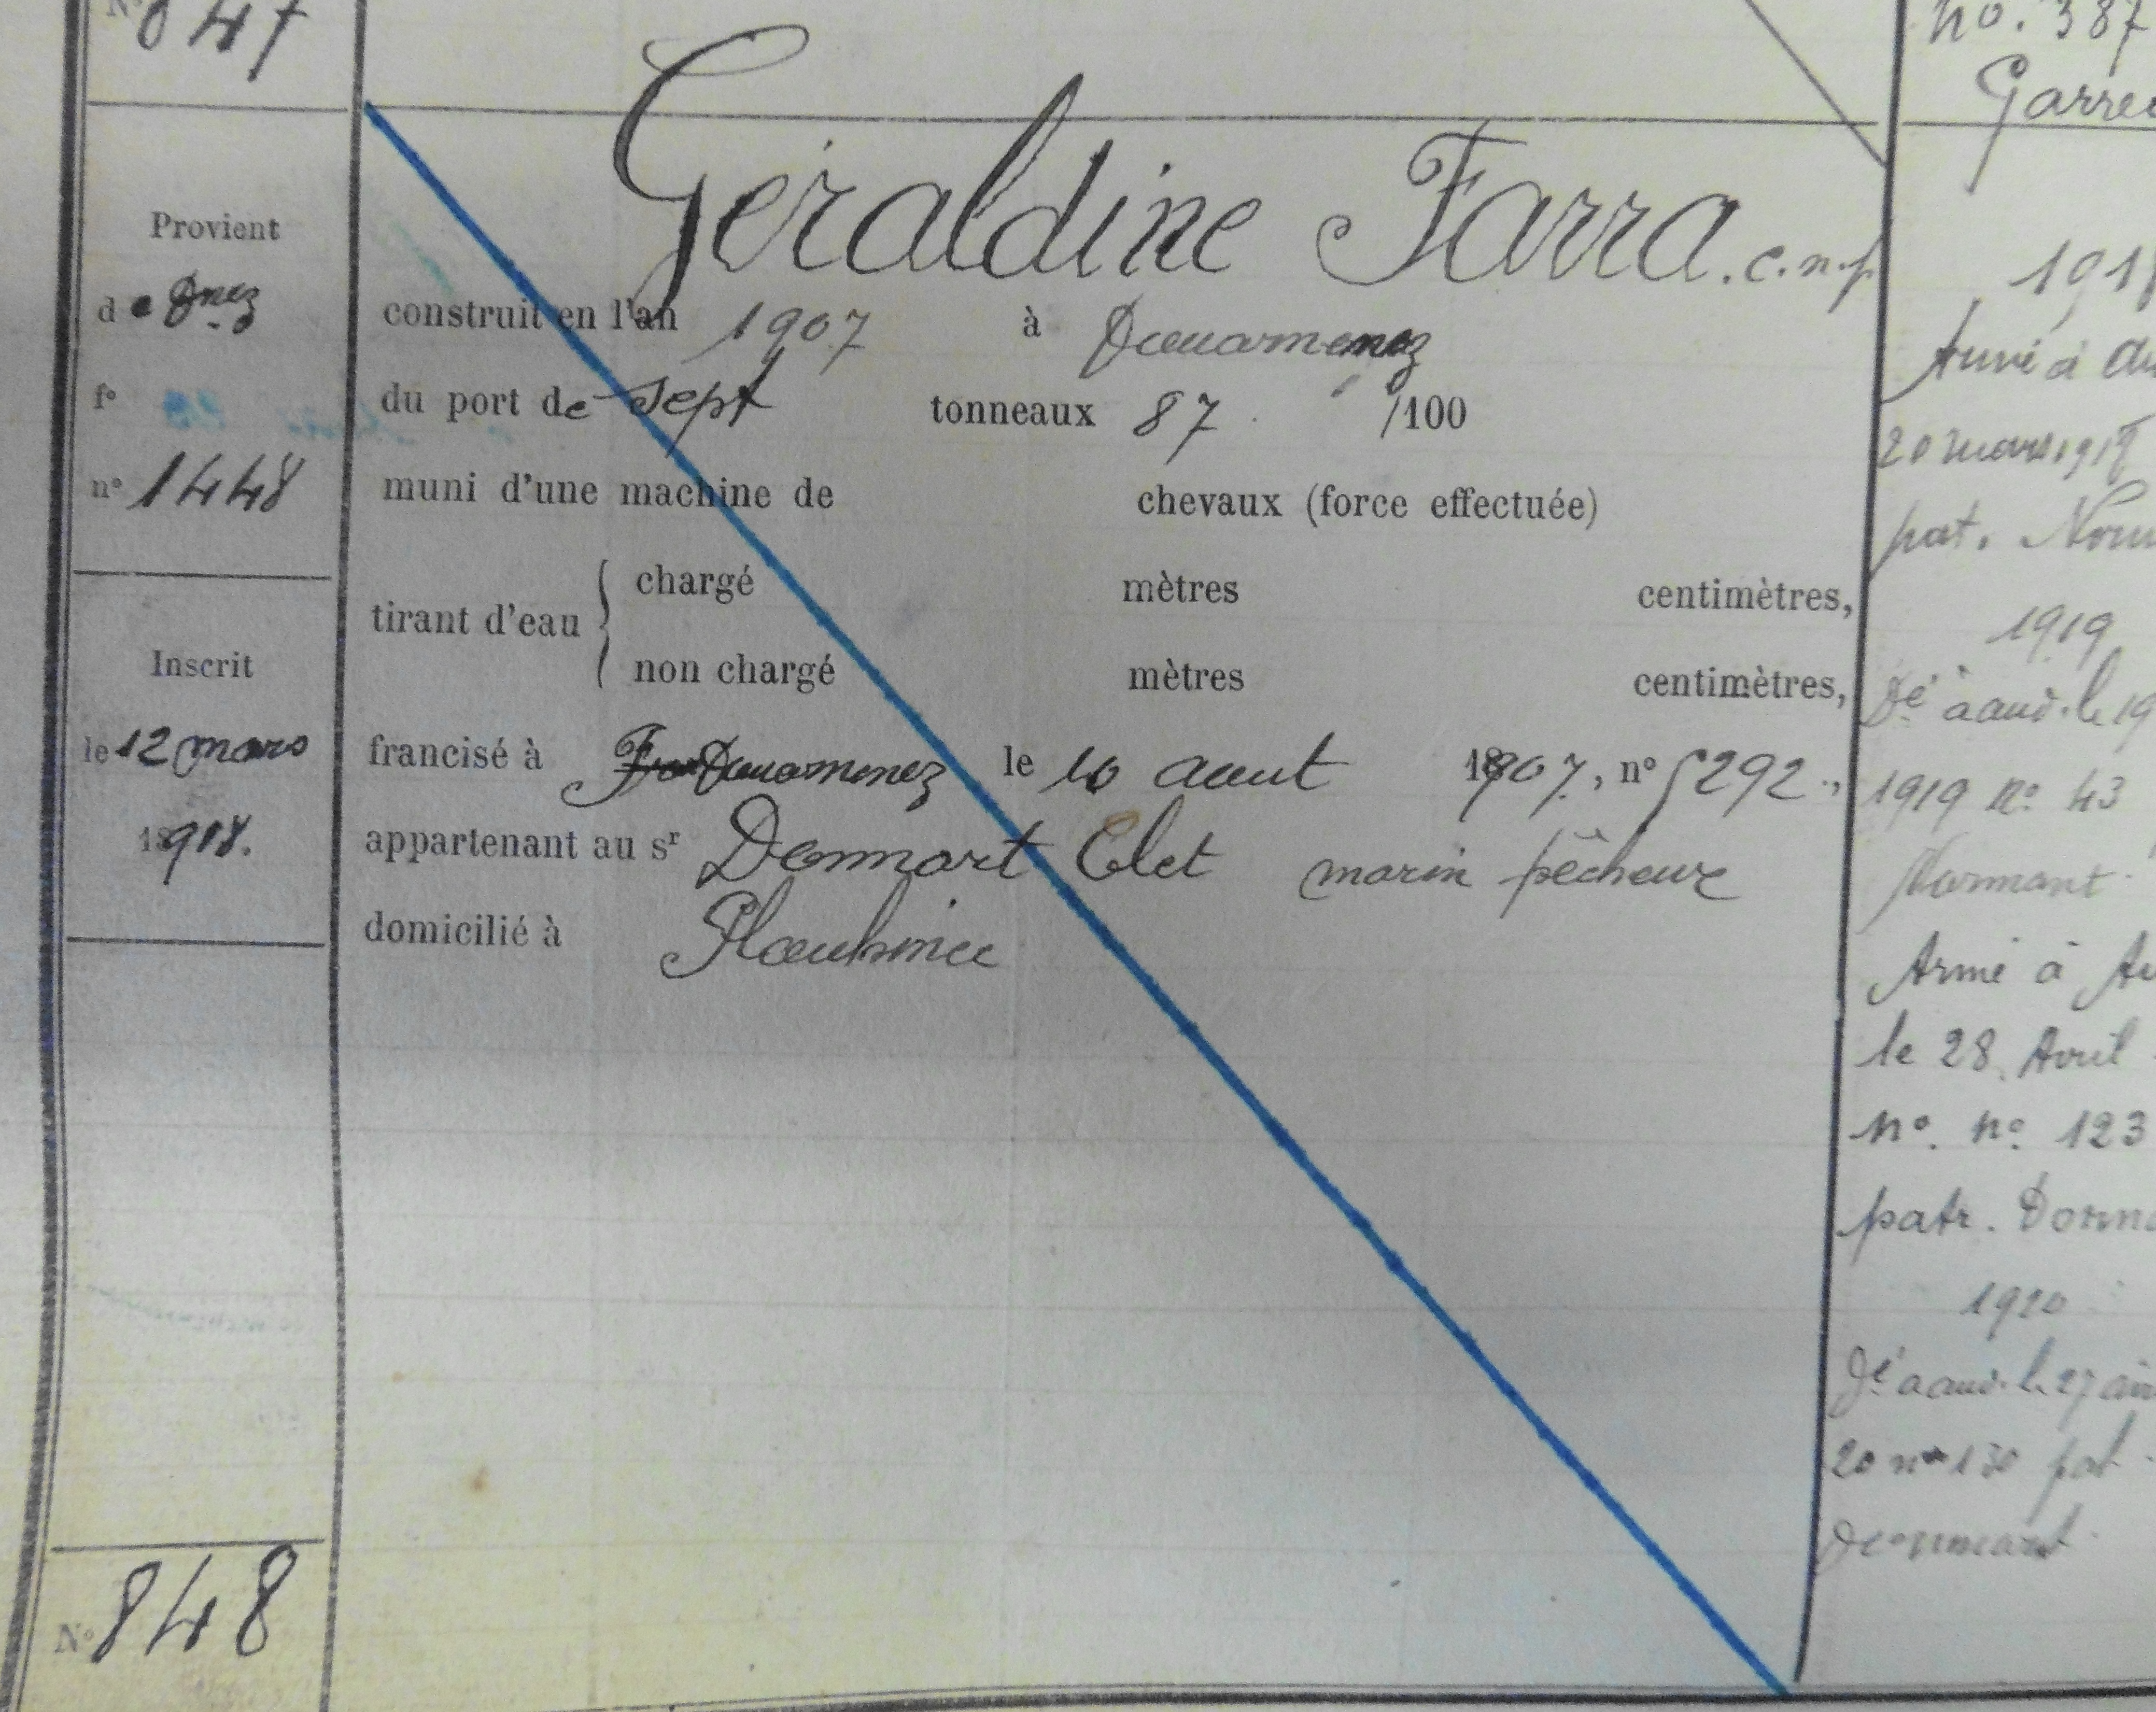 N° 847
Provient
de Dnez
f°
n° 1448
Inscrit
le 12 mars
1918.
N° 848
Géraldine Farra. c.n.p
construit en l'an 1907 à Douarnenez
du port de sept tonneaux 87 /100
muni d'une machine de chevaux (force effectuée)
tirant d'eau { chargé mètres centimètres,
non chargé mètres centimètres,
francisé à Douarnenez le 10 aout 1907, n° 5292.,
appartenant au sr Donnart Clet marin pêcheur
domicilié à Plouhinec
no. 387
Garrec
191
Armé à Au
20 mars 191
pat.
1919
Dé à aud. le 19
1919 n° 43
Armé à Au
le 28 Avril
n°. n° 123
patr. Donna
1920
Dé à aud. le 27
20 n° 130 pat.
Donnart